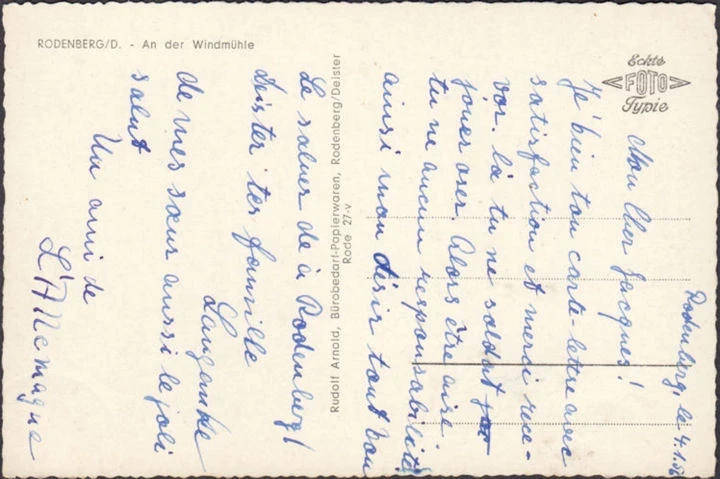 RODENBERG/D. - An der Windmühle
Echte
FOTO
Typie
Rudolf Arnold, Bürobedarf-Papierwaren, Rodenberg/Deister
Rode 27-v
Rodenberg, le 4.1.
Mon cher Jacques!
J'é bien ton carte-letere avec
satisfaction et merci rece-
vor. là tu ne soldat
jouer oser. Alors être aire
tu ne aucun responsabilité
ainsi mon désir tout bon
Le saluer de à Rodenberg/
Deister tes famille
Langenke
de mes sœur aussi le joli
salut
Un ami de
L'Allemagne